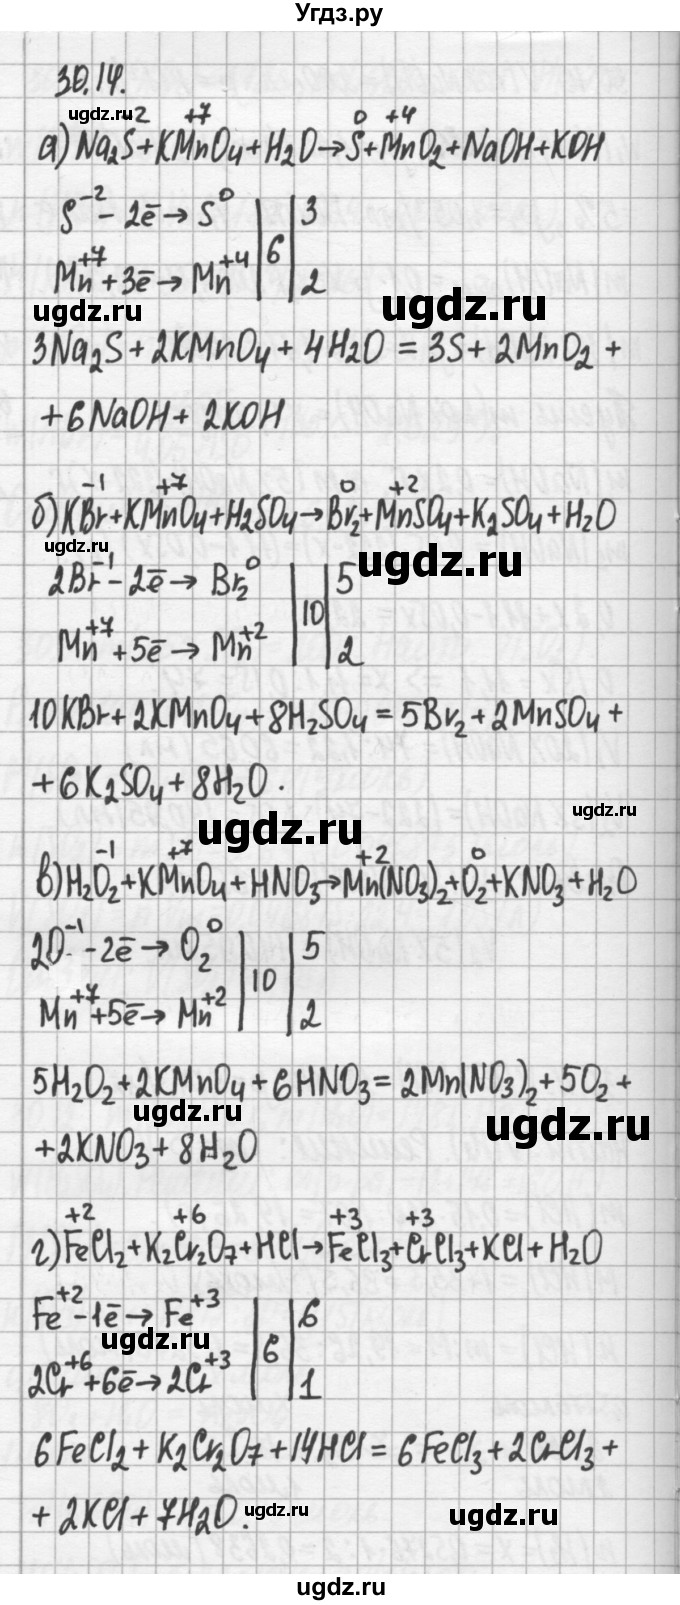 Угдз.ру
30.14.
а) Na₂S⁻² + KMn⁺⁷O₄ + H₂O → S⁰ + Mn⁺⁴O₂ + NaOH + KOH
ugdz.ru
S⁻² - 2ē → S⁰ | 6 | 3
Mn⁺⁷ + 3ē → Mn⁺⁴ | 2
ugdz.ru ugdz.ru
3Na₂S + 2KMnO₄ + 4H₂O = 3S + 2MnO₂ +
+ 6NaOH + 2KOH
б) KBr⁻¹ + KMn⁺⁷O₄ + H₂SO₄ → Br₂⁰ + Mn⁺²SO₄ + K₂SO₄ + H₂O
ugdz.ru ugdz.ru
2Br⁻¹ - 2ē → Br₂⁰ | 10 | 5
Mn⁺⁷ + 5ē → Mn⁺² | 2
10KBr + 2KMnO₄ + 8H₂SO₄ = 5Br₂ + 2MnSO₄ +
+ 6K₂SO₄ + 8H₂O.
ugdz.ru ugdz.ru
в) H₂O₂⁻¹ + KMn⁺⁷O₄ + HNO₃ → Mn⁺²(NO₃)₂ + O₂⁰ + KNO₃ + H₂O
2O⁻¹ - 2ē → O₂⁰ | 10 | 5
Mn⁺⁷ + 5ē → Mn⁺² | 2
5H₂O₂ + 2KMnO₄ + 6HNO₃ = 2Mn(NO₃)₂ + 5O₂ +
ugdz.ru ugdz.ru
+ 2KNO₃ + 8H₂O
г) Fe⁺²Cl₂ + K₂Cr₂⁺⁶O₇ + HCl → Fe⁺³Cl₃ + Cr⁺³Cl₃ + KCl + H₂O
Fe⁺² - 1ē → Fe⁺³ | 6 | 6
ugdz.ru
2Cr⁺⁶ + 6ē → 2Cr⁺³ | 1
6FeCl₂ + K₂Cr₂O₇ + 14HCl = 6FeCl₃ + 2CrCl₃ +
+ 2KCl + 7H₂O.
ugdz.ru ugdz.ru
ugdz.ru